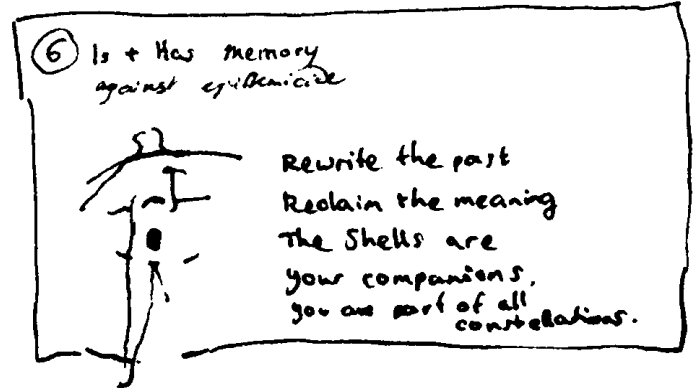 6 Is + Has memory
against epistemicide
Rewrite the past
Reclaim the meaning
The Shells are
your companions,
you are part of all
constellations.